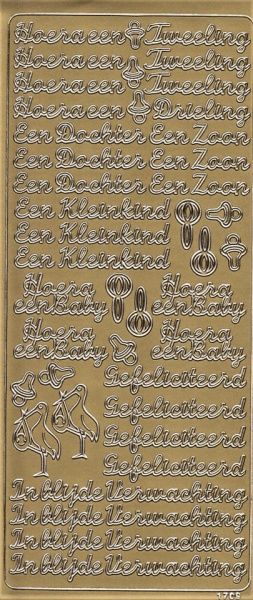 Hoera een Tweeling
Hoera een Tweeling
Hoera een Tweeling
Hoera een Drieling
Een Dochter Een Zoon
Een Dochter Een Zoon
Een Dochter Een Zoon
Een Kleinkind
Een Kleinkind
Een Kleinkind
Hoera Hoera
een Baby een Baby
Hoera Hoera
een Baby een Baby
Gefeliciteerd
Gefeliciteerd
Gefeliciteerd
Gefeliciteerd
In blijde Verwachting
In blijde Verwachting
In blijde Verwachting
In blijde Verwachting